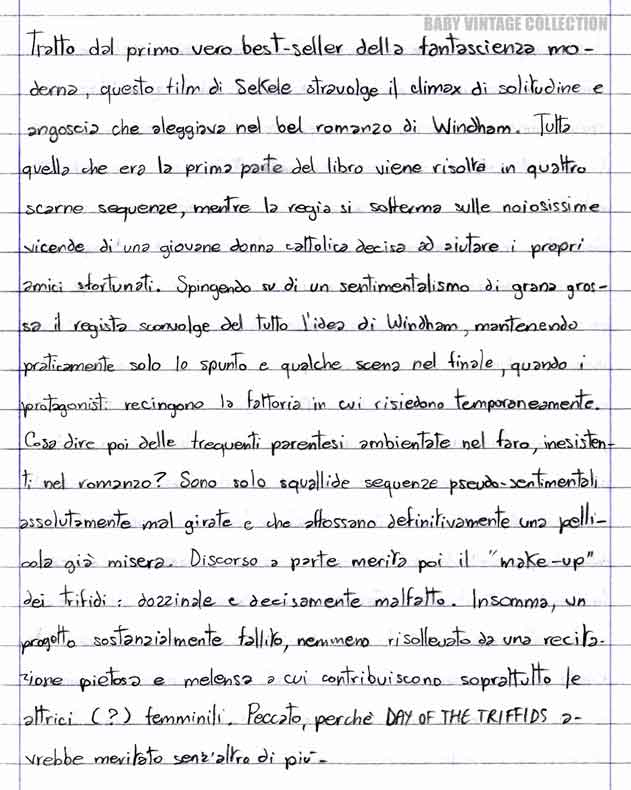 BABY VINTAGE COLLECTION
Tratto dal primo vero best-seller della fantascienza mo-
derna, questo film di Sekele stravolge il climax di solitudine e
angoscia che aleggiava nel bel romanzo di Windham. Tutta
quella che era la prima parte del libro viene risolta in quattro
scarne sequenze, mentre la regia si sofferma sulle noiosissime
vicende di una giovane donna cattolica decisa ad aiutare i propri
amici sfortunati. Spingendo su di un sentimentalismo di grana gros-
sa il regista sconvolge del tutto l'idea di Windham, mantenendo
praticamente solo lo spunto e qualche scena nel finale, quando i
protagonisti recingono la fattoria in cui risiedono temporaneamente.
Cosa dire poi delle frequenti parentesi ambientate nel faro, inesisten-
ti nel romanzo? Sono solo squallide sequenze pseudo-sentimentali
assolutamente mal girate e che affossano definitivamente una pelli-
cola già misera. Discorso a parte merita poi il "make-up"
dei trifidi: dozzinale e decisamente malfatto. Insomma, un
progetto sostanzialmente fallito, nemmeno risollevato da una recita-
zione pietosa e melensa a cui contribuiscono soprattutto le
attrici (?) femminili. Peccato, perchè DAY OF THE TRIFFIDS a-
vrebbe meritato senz'altro di più-